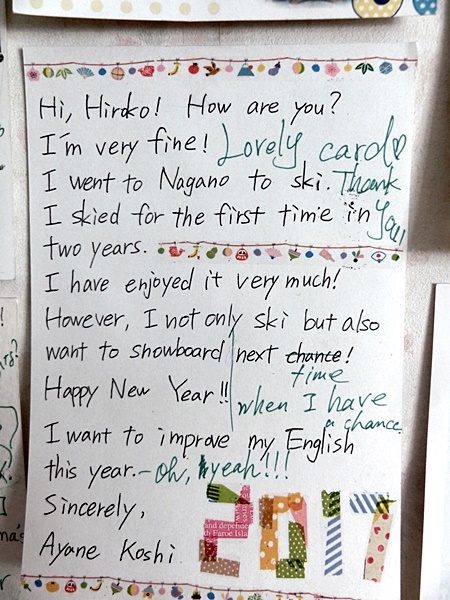 Hi, Hiroko! How are you?
I'm very fine! Lovely card
I went to Nagano to ski. Thank
I skied for the first time in you!!
two years.
I have enjoyed it very much!
However, I not only ski but also
want to snowboard next chance!
time
Happy New Year!! when I have
a chance
I want to improve my English
this year. - oh, yeah!!!
Sincerely,
Ayane Koshi
2017
and depende
dr Faroe Isla